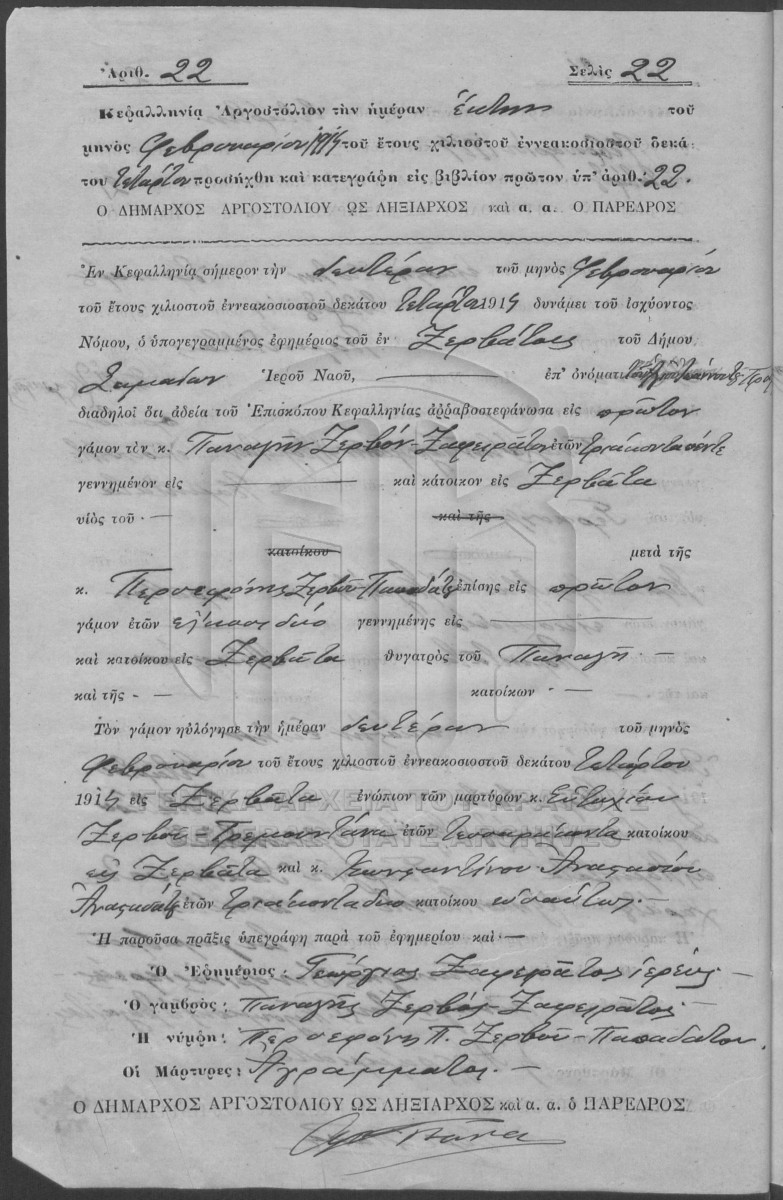 Ἀριθ. 22 Σελὶς 22
Κεφαλληνίᾳ Ἀργοστόλιον τὴν ἡμέραν ἕκτην τοῦ
μηνὸς Φεβρουαρίου 1914 τοῦ ἔτους χιλιοστοῦ ἐννεακοσιοστοῦ δεκά-
του τετάρτου προσήχθη καὶ κατεγράφη εἰς βιβλίον πρῶτον ὑπ' ἀριθ. 22.
Ο ΔΗΜΑΡΧΟΣ ΑΡΓΟΣΤΟΛΙΟΥ ΩΣ ΛΗΞΙΑΡΧΟΣ καὶ α. α. Ο ΠΑΡΕΔΡΟΣ
Ἐν Κεφαλληνίᾳ σήμερον τὴν δευτέραν τοῦ μηνὸς Φεβρουαρίου
τοῦ ἔτους χιλιοστοῦ ἐννεακοσιοστοῦ δεκάτου τετάρτου 1914 δυνάμει τοῦ ἰσχύοντος
Νόμου, ὁ ὑπογεγραμμένος ἐφημέριος τοῦ ἐν Ζερβάτοις τοῦ Δήμου
Σαμαίων Ἱεροῦ Ναοῦ, ἐπ' ὀνόματι
διαδηλοῖ ὅτι ἀδείᾳ τοῦ Ἐπισκόπου Κεφαλληνίας ἀρραβοστεφάνωσα εἰς πρῶτον
γάμον τὸν κ. Παναγῆν Ζερβόν-Ζαφειράτον ἐτῶν τριάκοντα πέντε
γεννημένον εἰς καὶ κάτοικον εἰς Ζερβάτα
υἱὸς τοῦ - καὶ τῆς
κατοίκου μετὰ τῆς
κ. Περσεφόνης Ζερβοῦ-Παπαδάτου ἐπίσης εἰς πρῶτον
γάμον ἐτῶν εἴκοσι δύο γεννημένης εἰς
καὶ κατοίκου εἰς Ζερβάτα θυγατρὸς τοῦ Παναγῆ -
καὶ τῆς - - κατοίκων - -
Τὸν γάμον ηὐλόγησε τὴν ἡμέραν δευτέραν τοῦ μηνὸς
Φεβρουαρίου τοῦ ἔτους χιλιοστοῦ ἐννεακοσιοστοῦ δεκάτου τετάρτου
1914 εἰς Ζερβάτα ἐνώπιον τῶν μαρτύρων κ. Εὐτυχίου
Ζερβοῦ-Τρεμουντάνα ἐτῶν τεσσαράκοντα κατοίκου
εἰς Ζερβάτα καὶ κ. Κωνσταντίνου Ἀναστασίου
ἐτῶν τριάκοντα δύο κατοίκου ὡσαύτως. -
Ἡ παροῦσα πρᾶξις ὑπεγράφη παρὰ τοῦ ἐφημερίου καὶ -
Ὁ Ἐφημέριος: Γεώργιος Ζαφειράτος ἱερεύς -
Ὁ γαμβρός: Παναγῆς Ζερβός-Ζαφειράτος -
Ἡ νύμφη: Περσεφόνη Π. Ζερβοῦ-Παπαδάτου.
Οἱ Μάρτυρες: Ἀγράμματοι. -
Ο ΔΗΜΑΡΧΟΣ ΑΡΓΟΣΤΟΛΙΟΥ ΩΣ ΛΗΞΙΑΡΧΟΣ καὶ α. α. ὁ ΠΑΡΕΔΡΟΣ